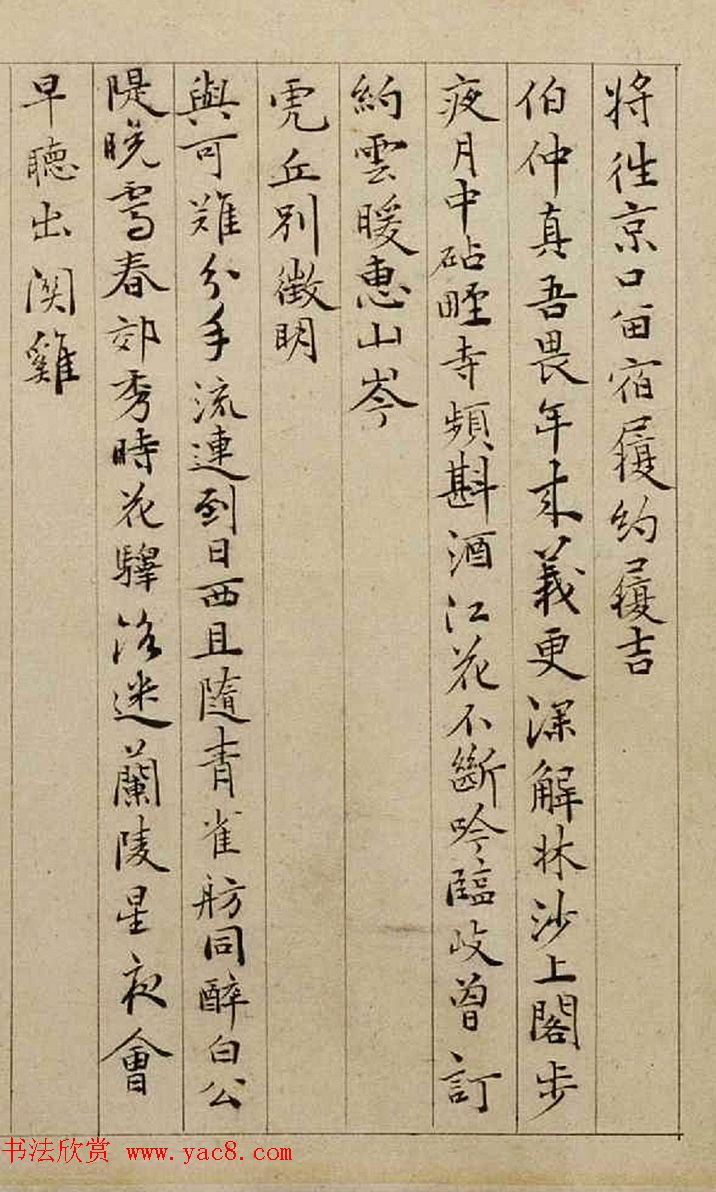 将往京口留宿履約履吉
伯仲真吾畏年来義更深解牀沙上閣步
夜月中砧野寺頻斟酒江花不斷吟臨岐曾訂
約雲暖惠山岑
虎丘別徵明
與可難分手流連到日西且隨青雀舫同醉白公
隄晚靄春郊秀時花驛路迷蘭陵星夜會
早聽出関雞
书法欣赏 www.yac8.com